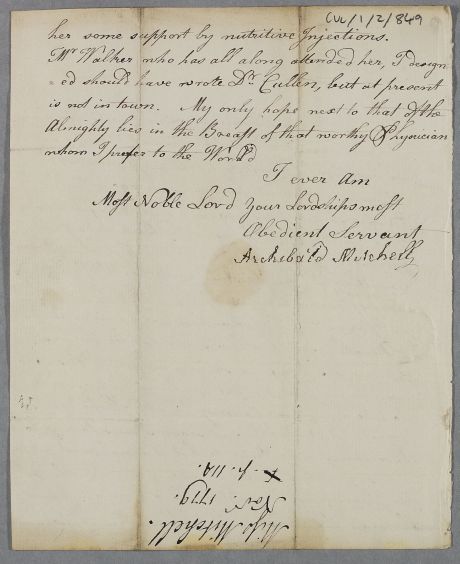 CUL/1/2/849
her some support by nutritive Injections.
Mr Walker who has all along attended her, I design
=ed should have wrote Dr Cullen, but at present
is not in town. My only hope next to that of the
Almighty lies in the Breast of that worthy Physician
whom I prefer to the World
I ever Am
Most Noble Lord your Lordships most
Obedient Servant
Archibald Mitchell
Miss Mitchell.
Novr. 1779.
p. 112.